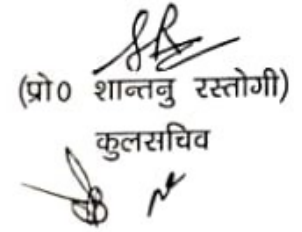 (प्रो0 शान्तनु रस्तोगी)
कुलसचिव